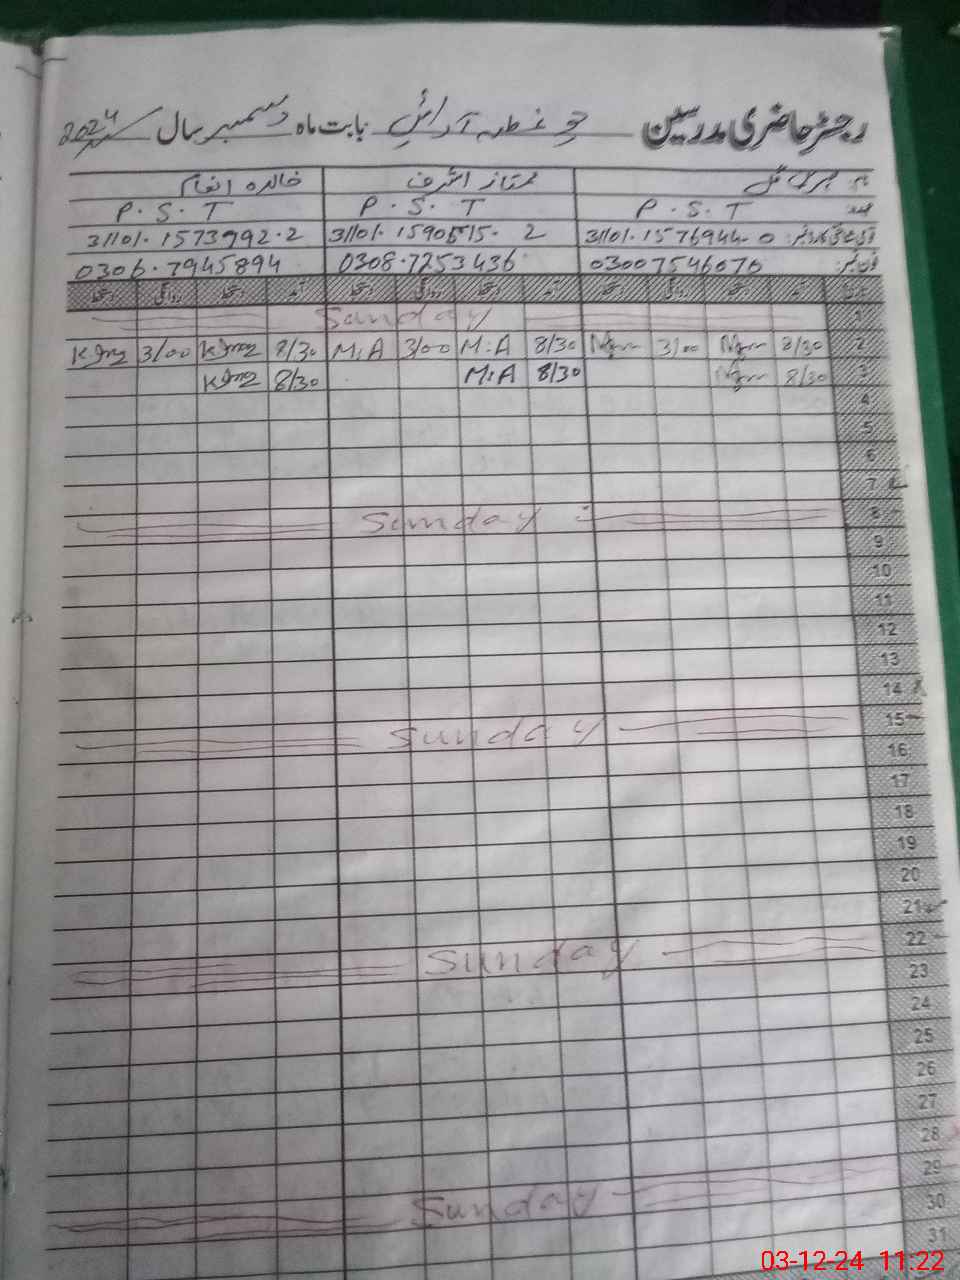 رجسٹر حاضری مدرسین آرائیں بابت ماہ دسمبر سال 2024
نام ممتاز اشرف خالدہ انعام
عہدہ P.S.T P.S.T P.S.T
قومی شناختی کارڈ نمبر 31101.1576944-0 31101.1590515-2 31101.1573992-2
فون نمبر 03007546076 0308-7253436 0306-7945894
تاریخ آمد دستخط روانگی دستخط آمد دستخط روانگی دستخط آمد دستخط روانگی دستخط
1 Sunday
2 8/30 3/00 8/30 M.A 3/00 M.A 8/30 3/00
3 8/30 8/30 M.A 8/30
4
5
6
7
8 Sunday
9
10
11
12
13
14
15 Sunday
16
17
18
19
20
21
22 Sunday
23
24
25
26
27
28
29 Sunday
30
31
03-12-24 11:22